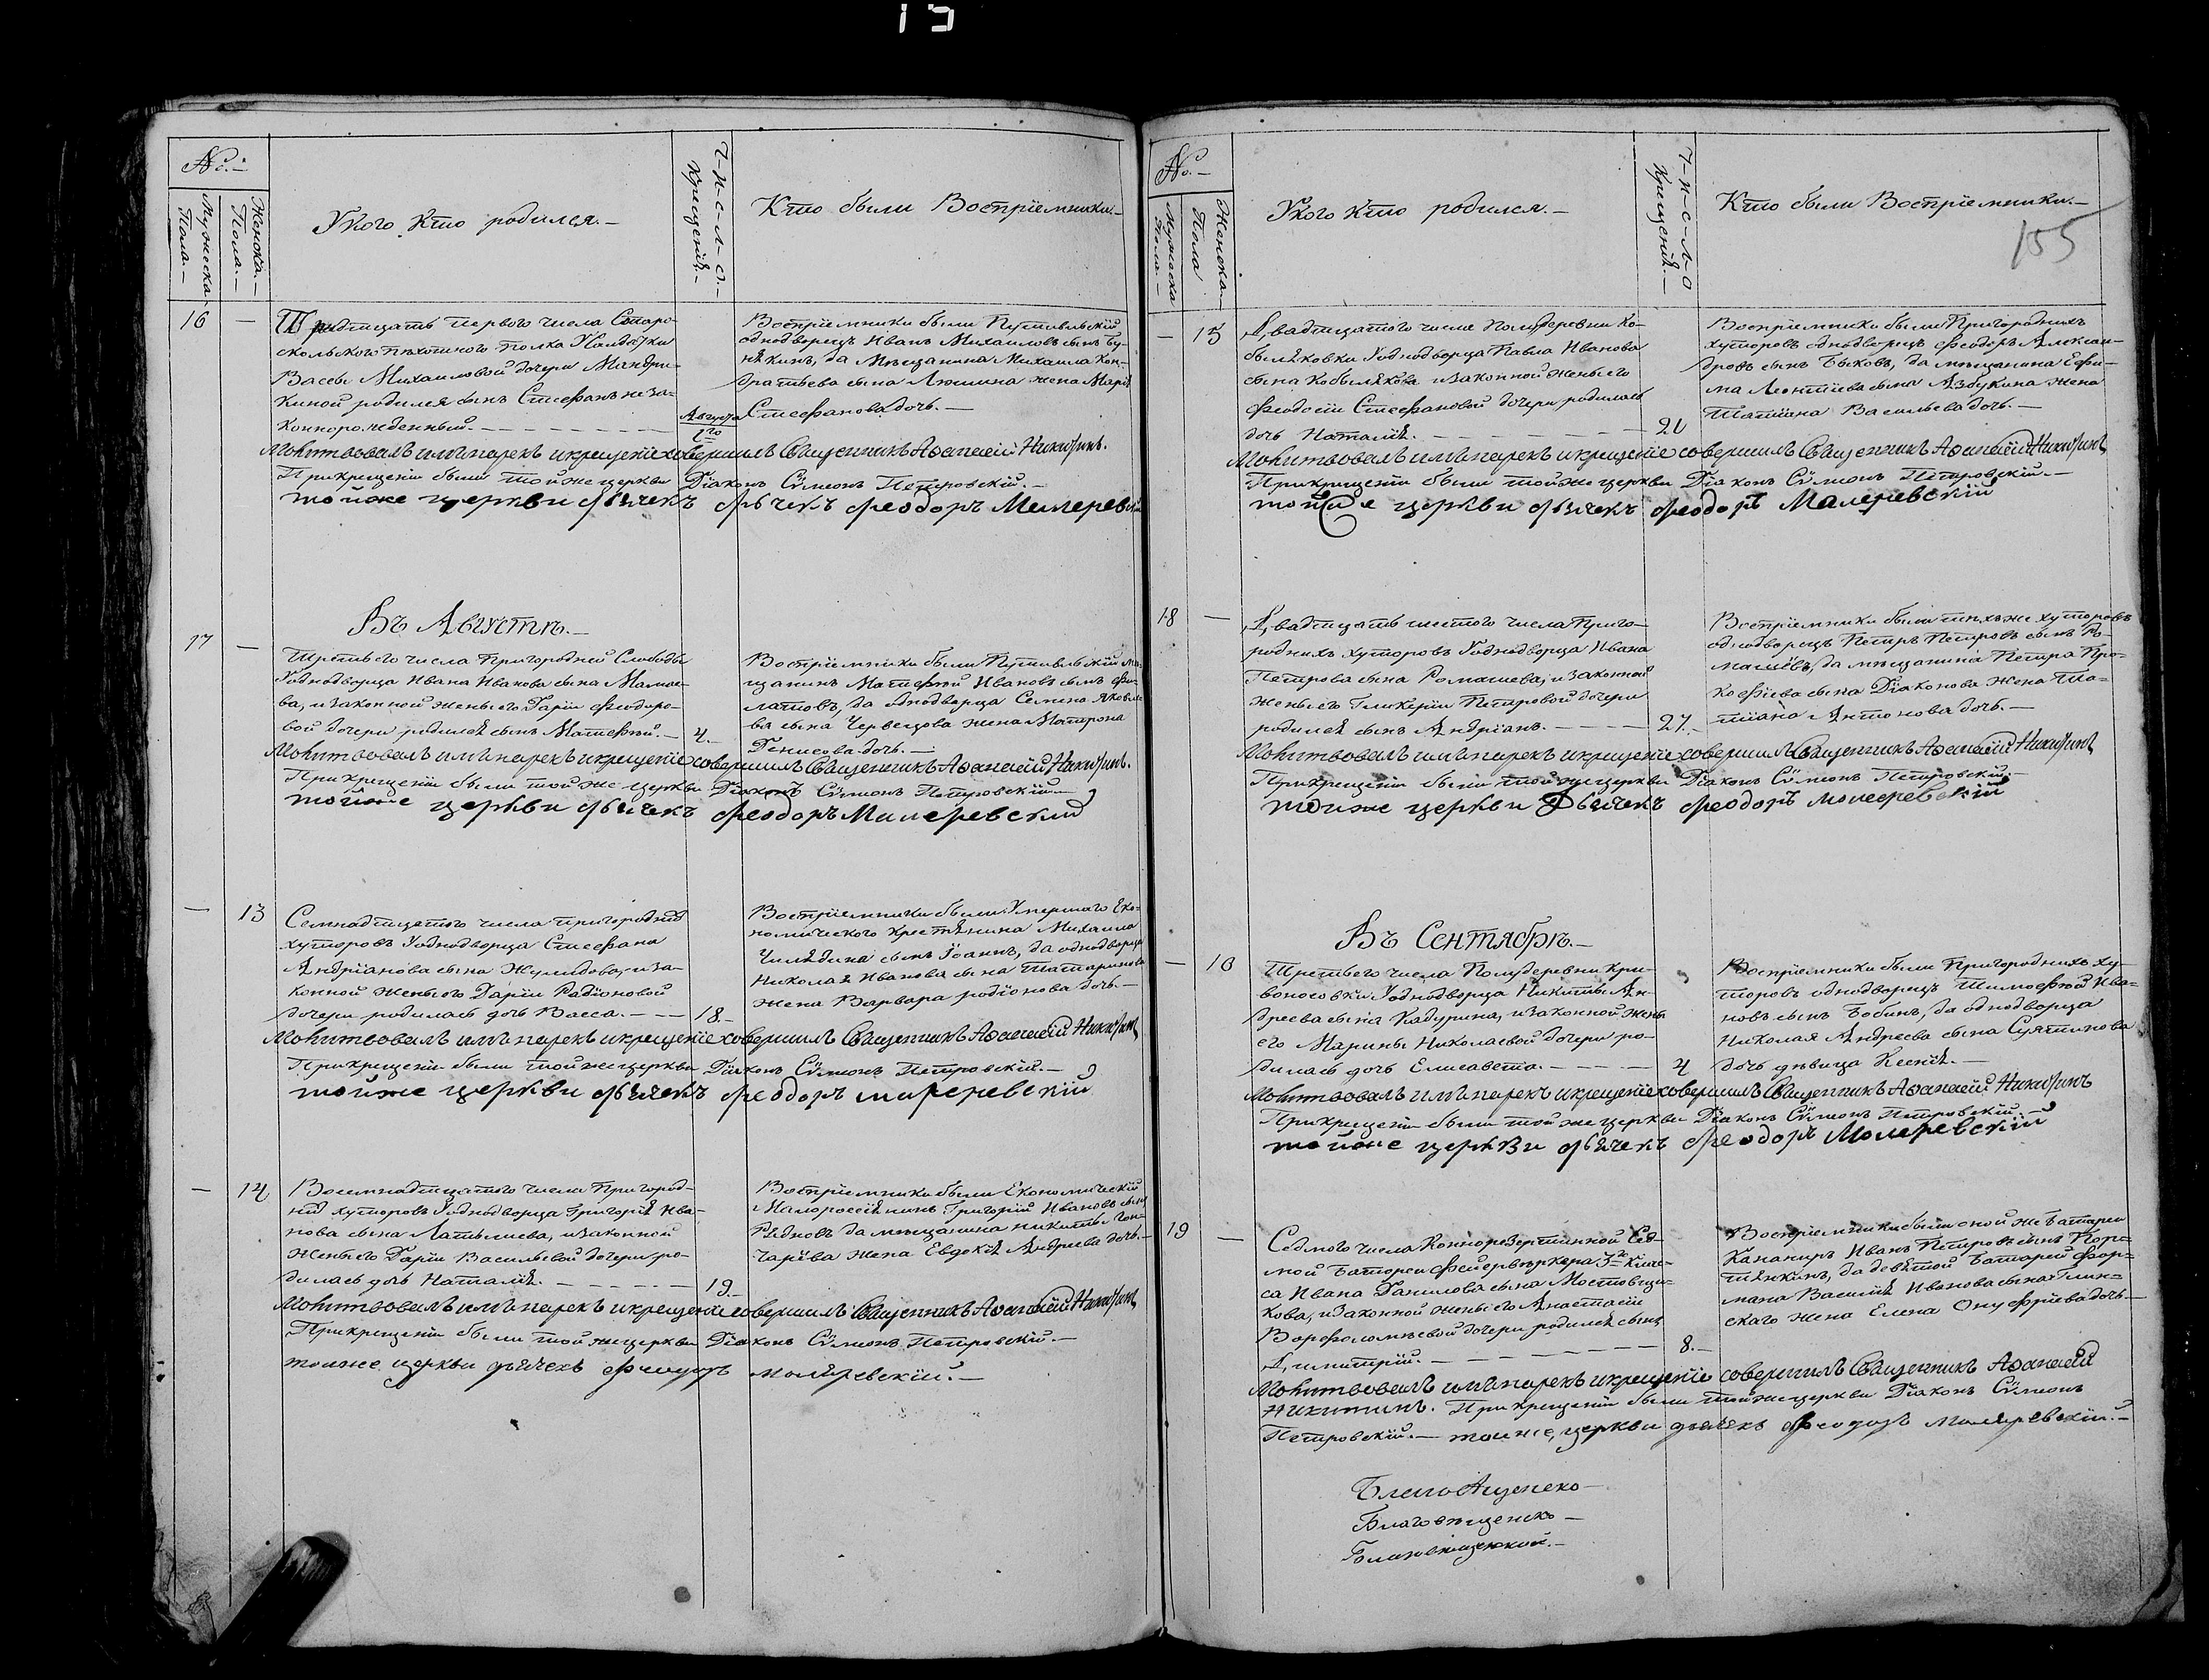 15
№.
Мужеска Пола.
Женска. Пола.
У кого Кто родился.
Число Крещенія.
Кто были Воспріемники.
16 —
Тридцать перваго числа Старо-
скольского пѣхотного полка Усолдатки
Вассы Михайловой дочери Мандри-
киной родился сынъ Стефанъ неза-
коннорожденный. —
Августа
1го
Воспріемники были Путивльскій
однодворецъ Иванъ Михайловъ сынъ
да мѣщанина Михаила Кон-
дратьева сына жена Марія
Стефанова дочь. —
Молитвовалъ имя нарекъ и крещеніе совершилъ Священникъ Афанасій Никитинъ.
При крещеніи были тойже церкви Діаконъ Сѵмеонъ Петровскій. —
тойже церкви дьячекъ дьчекъ Феодоръ
Въ Августѣ. —
17 —
Третьего числа Пригородней Слободы
Уоднодворца Ивана Иванова сына Мамае-
ва, и законной жены его Даріи Феодоро-
вой дочери родился сынъ Матфей. — 4. —
Воспріемники были Путивльскій мѣ-
щанинъ Матфей Ивановъ сынъ Фи-
латовъ, да однодворца Семена Яковле-
ва сына Червецова жена Матрона
Денисова дочь. —
Молитвовалъ имя нарекъ и крещеніе совершилъ Священникъ Афанасій Никитинъ.
При крещеніи были тойже церкви Діаконъ Сѵмеонъ Петровскій —
тойже церкви дьячекъ Феодоръ Малеревский
— 13
Семнадцатого числа пригородніхъ
хуторовъ Уоднодворца Стефана
Андріанова сына и за-
конной жены его Даріи Радіоновой
дочери родилась дочь Васса. — 18. —
Воспріемники были Умершаго Еко-
номического крестьянина Михаила
сынъ Іоаннъ, да однодворца
Николая Иванова сына Татаринова
жена Варвара родіонова дочь. —
Молитвовалъ имя нарекъ и крещеніе совершилъ Священникъ Афанасій Никитинъ
При крещеніи были тойже церкви Діаконъ Сѵмеонъ Петровскій. —
тойже церкви дьячекъ Феодоръ
— 14
Восемнадцатого числа Пригород-
ніхъ хуторовъ Уоднодворца Григорія Ива-
нова сына Латышева, и законной
жены его Даріи Васильевой дочери ро-
дилась дочь Наталія. — 19. —
Воспріемники были Економическій
Малороссіянинъ Григорій Ивановъ сынъ
да мѣщанина никиты Гон-
чарёва жена Евдокія Андреева дочь. —
Молитвовалъ имя нарекъ и крещеніе совершилъ Священникъ Афанасій Никитинъ
При крещеніи были тойже церкви Діаконъ Сѵмеонъ Петровскій. —
тоиже церкви дьячекъ Феодоръ молеревскій. —
№. —
Мужеска Пола. —
Женска. Пола
У кого Кто родился. —
Число Крещенія. —
Кто были Воспріемники. —
155
— 15
Двадцатого числа Полудеревни Ко-
былѣковки Уоднодворца Павла Иванова
сына Кобылѣкова и законной жены его
Феодосіи Стефановой дочери родилась
дочь Наталія. — 21
Воспріемники были Пригороднихъ
хуторовъ однодворецъ Феодоръ Алексан-
дровъ сынъ Быковъ, да мѣщанина Ефи-
ма Леонтіева сына Азбукина жена
Татіана Васильева дочь. —
Молитвовалъ имя нарекъ и крещеніе совершилъ Священникъ Афанасій Никитинъ
При крещеніи были тойже церкви Діаконъ Сѵмеонъ Петровскій. —
тойже церкви дьячекъ Феодоръ Малеревскій
18 —
Двадцать шестого числа Приго-
роднихъ хуторовъ Уоднодворца Ивана
Петрова сына Ромашева, и законной
жены его Гликеріи Петровой дочери
родился сынъ Андріанъ. — 27. —
Воспріемники были тѣхъже хуторовъ
однодворецъ Петръ Петровъ сынъ Ро-
машёвъ, да мѣщанина Петра Про-
кофіева сына Діаконова жена Та-
тіана Антонова дочь. —
Молитвовалъ имя нарекъ и крещеніе совершилъ Священникъ Афанасій Никитинъ
При крещеніи были тойже церкви Діаконъ Сѵмеонъ Петровскій. —
тоиже церкви Дьячекъ Феодоръ молеревскій
Въ Сентябрѣ. —
— 16
Третьего числа Полудеревни Кри-
воносовки Уоднодворца Никиты Ан-
дреева сына Кадурина, и законной жены
его Марины Николаевой дочери ро-
дилась дочь Елисавета. — 4
Воспріемники были Пригороднихъ ху-
торовъ однодворецъ Тимофей Ива-
новъ сынъ Бобинъ, да однодворца
Николая Андреева сына
дочь дѣвица Ксенія. —
Молитвовалъ имя нарекъ и крещеніе совершилъ Священникъ Афанасій Никитинъ
При крещеніи были тойже церкви Діаконъ Сѵмеонъ Петровскій. —
тойже церкви дьячекъ Феодоръ Молеревскій
19 —
Седмого числа Коннорезервнной Сед-
мой батареи Фейерверкера 3го Клас-
са Ивана Данилова сына Мостовщи-
кова, и законной жены его Анастасіи
Ворфоломѣевой дочери родился сынъ
Димитрій. — 8. —
Воспріемники были оной же батареи
Канониръ Иванъ Петровъ сынъ
да девѣтой батареи Фор-
мана Василія Иванова сына Глин-
скаго жена Елена Онуфріева дочь —
Молитвовалъ имя нарекъ и крещеніе совершилъ Священникъ Афанасій
Никитинъ. При крещеніи были тойже церкви Діаконъ Сѵмеонъ
Петровскій. — тоиже, церкви дьячекъ Феодоръ молеревскій. —
Благовѣщенско —